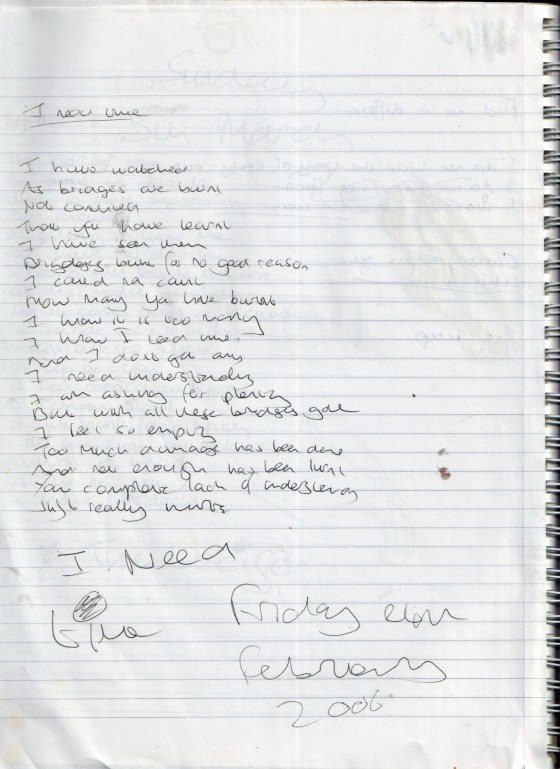 I need time
I have watched
As bridges are burnt
Not convinced
That you have learnt
I have seen them
Bridges burnt for no good reason
I cared not count
How many you have burnt
I know it is too many
I know I need time.
And I dont get any
I need understanding
I am asking for plenty
But with all these bridges gone
I feel so empty
Too much damage has been done
And not enough has been learnt
Your complete lack of understanding
Just really hurts
I Need
time
Friday
February
2006